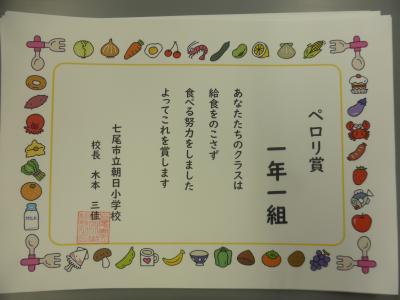 ペロリ賞
一年一組
あなたたちのクラスは
給食をのこさず
食べる努力をしました
よってこれを賞します
七尾市立朝日小学校
校長 木本 三佳